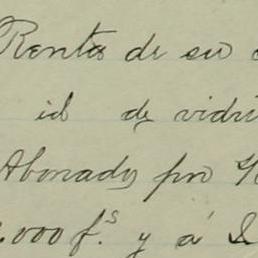 Renta de su
id de vidri
Abonado por
.000 f.s y á